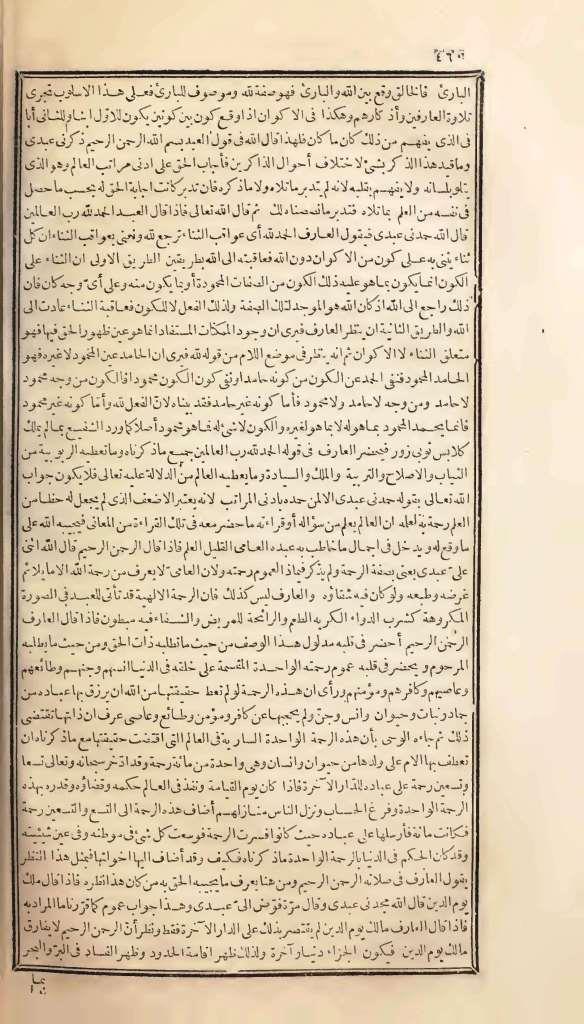 ٤٦٠
البارئ فالخالق وقع بين الله والبارئ فهو صفة لله وموصوف للبارئ فعلى هذا الاسلوب تجرى
تلاوة العارفين وأذكارهم وهكذا فى الاكوان اذا وقع كون بين كونين يكون للاول ابنا وللثانى أبا
فى الذى يفهم من ذلك كان ما كان فلهذا قال الله فى قول العبد بسم الله الرحمن الرحيم ذكرنى عبدى
وما قيد هذا الذكر بشئ لاختلاف أحوال الذاكرين فأجاب الحق على ادنى مراتب العالم وهو الذى
يتلو بلسانه ولا يفهم بقلبه لانه لم يتدبر ما تلاه ولا ما ذكره فان تدبر كانت اجابة الحق له بحسب ما حصل
فى نفسه من العلم بما تلاه فتدبر ما نصصناه لك ثم قال الله تعالى فاذا قال العبد الحمد لله رب العالمين
قال الله حمدنى عبدى فيقول العارف الحمد لله أى عواقب الثناء ترجع لله ونعنى بعواقب الثناء ان كل
ثناء يثنى به على كون من الاكوان دون الله فعاقبته الى الله بطريقين الطريق الاولى ان الثناء على
الكون انما يكون بما هو عليه ذلك الكون من الصفات المحمودة أو بما يكون منه وعلى أى وجه كان فان
ذلك راجع الى الله اذ كان الله هو الموجد لتلك الصفة ولذلك الفعل لا للكون فعاقبة الثناء عادت الى
الله والطريق الثانية ان ينظر العارف فيرى ان وجود الممكنات المستفاد انما هو عين ظهور الحق فيها فهو
متعلق الثناء لا الاكوان ثم انه ينظر فى موضع اللام من قوله لله فيرى ان الحامد عين المحمود لا غيره فهو
الحامد المحمود فنفى الحمد عن الكون من كونه حامدا ونفى كون الكون محمودا فالكون من وجه محمود
لا حامد ومن وجه لا حامد ولا محمود فأما كونه غير حامد فقد بيناه لانّ الفعل لله وأما كونه غير محمود
فانما يحمد المحمود بما هو له لا بما هو لغيره والكون لا شئ له فما هو محمود أصلا كما ورد المتشبع بما لم يملك
كلابس ثوبى زور فيحضر العارف فى قوله الحمد لله رب العالمين جميع ما ذكرناه وما تعطيه الربوبية من
الثبات والاصلاح والتربية والملك والسيادة وما يعطيه العالم من الدلالة عليه تعالى فلا يكون جواب
الله تعالى بقوله حمدنى عبدى الا لمن حمده بادنى المراتب لانه يعتبر الاضعف الذى لم يجعل له حظا من
العلم رحمة به لعلمه ان العالم يعلم من سؤاله أو قراءته ما حضر معه فى تلك القراءة من المعانى فيجيبه الله على
ما وقع له ويدخل فى اجمال ما خاطب به عبده العامى القليل العلم فاذا قال الرحمن الرحيم قال الله اثنى
علىّ عبدى يعنى بصفة الرحمة ولم يذكر فيماذا لعموم رحمته ولان العامى لا يعرف من رحمة الله الا ما يلائم
غرضه وطبعه ولو كان فيه شقاؤه والعارف ليس كذلك فان الرحمة الالهية قد تأتى للعبد فى الصورة
المكروهة كشرب الدواء الكريه الطعم والرائحة للمريض والشفاء فيه مبطون فاذا قال العارف
الرحمن الرحيم أحضر فى قلبه مدلول هذا الوصف من حيث ما تطلبه ذات الحق ومن حيث ما يطلبه
المرحوم ويحضر فى قلبه عموم رحمته الواحدة المقسمة على خلقه فى الدنيا انسهم وجنهم وطائعهم
وعاصيهم وكافرهم ومؤمنهم ورأى ان هذه الرحمة لو لم تعط حقيقتها من الله ان يرزق بها عباده من
جماد ونبات وحيوان وانس وجنّ ولم يحجبها عن كافر ومؤمن وطائع وعاصى عرف ان ذاتها تقتضى
ذلك ثم جاءه الوحى بأن هذه الرحمة الواحدة السارية فى العالم التى اقتضت حقيقتها مع ما ذكرناه ان
تعطف بها الام على ولدها من حيوان وانسان وهى واحدة من مائة رحمة وقد ادّخر سبحانه وتعالى تسعا
وتسعين رحمة على عباده للدار الآخرة فاذا كان يوم القيامة ونفذ فى العالم حكمه وقضاؤه وقدره بهذه
الرحمة الواحدة وفرغ الحساب ونزل الناس منازلهم أضاف هذه الرحمة الى التسع والتسعين رحمة
فكانت مائة فأرسلها على عباده حيث كانوا فسرت الرحمة فوسعت كل شئ فى موطنه وفى عين شيئيته
وقد كان الحكم فى الدنيا بالرحمة الواحدة ما ذكرناه فكيف وقد أضاف اليها اخواتها فبمثل هذا النظر
يقول العارف فى صلاته الرحمن الرحيم ومن هنا يعرف ما يجيبه الحق به من كان هذا نظره فاذا قال ملك
يوم الدين قال الله مجدنى عبدى وقال مرّة فوّض الىّ عبدى وهذا جواب عموم كما قرّرنا ما المراد به
فاذا قال العارف مالك يوم الدين لم يقتصر بذلك على الدار الآخرة فقط ونظر أنّ الرحمن الرحيم لا يفارق
مالك يوم الدين فيكون الجزاء دنيا وآخرة ولذلك ظهر اقامة الحدود وظهر الفساد فى البرّ والبحر
بما